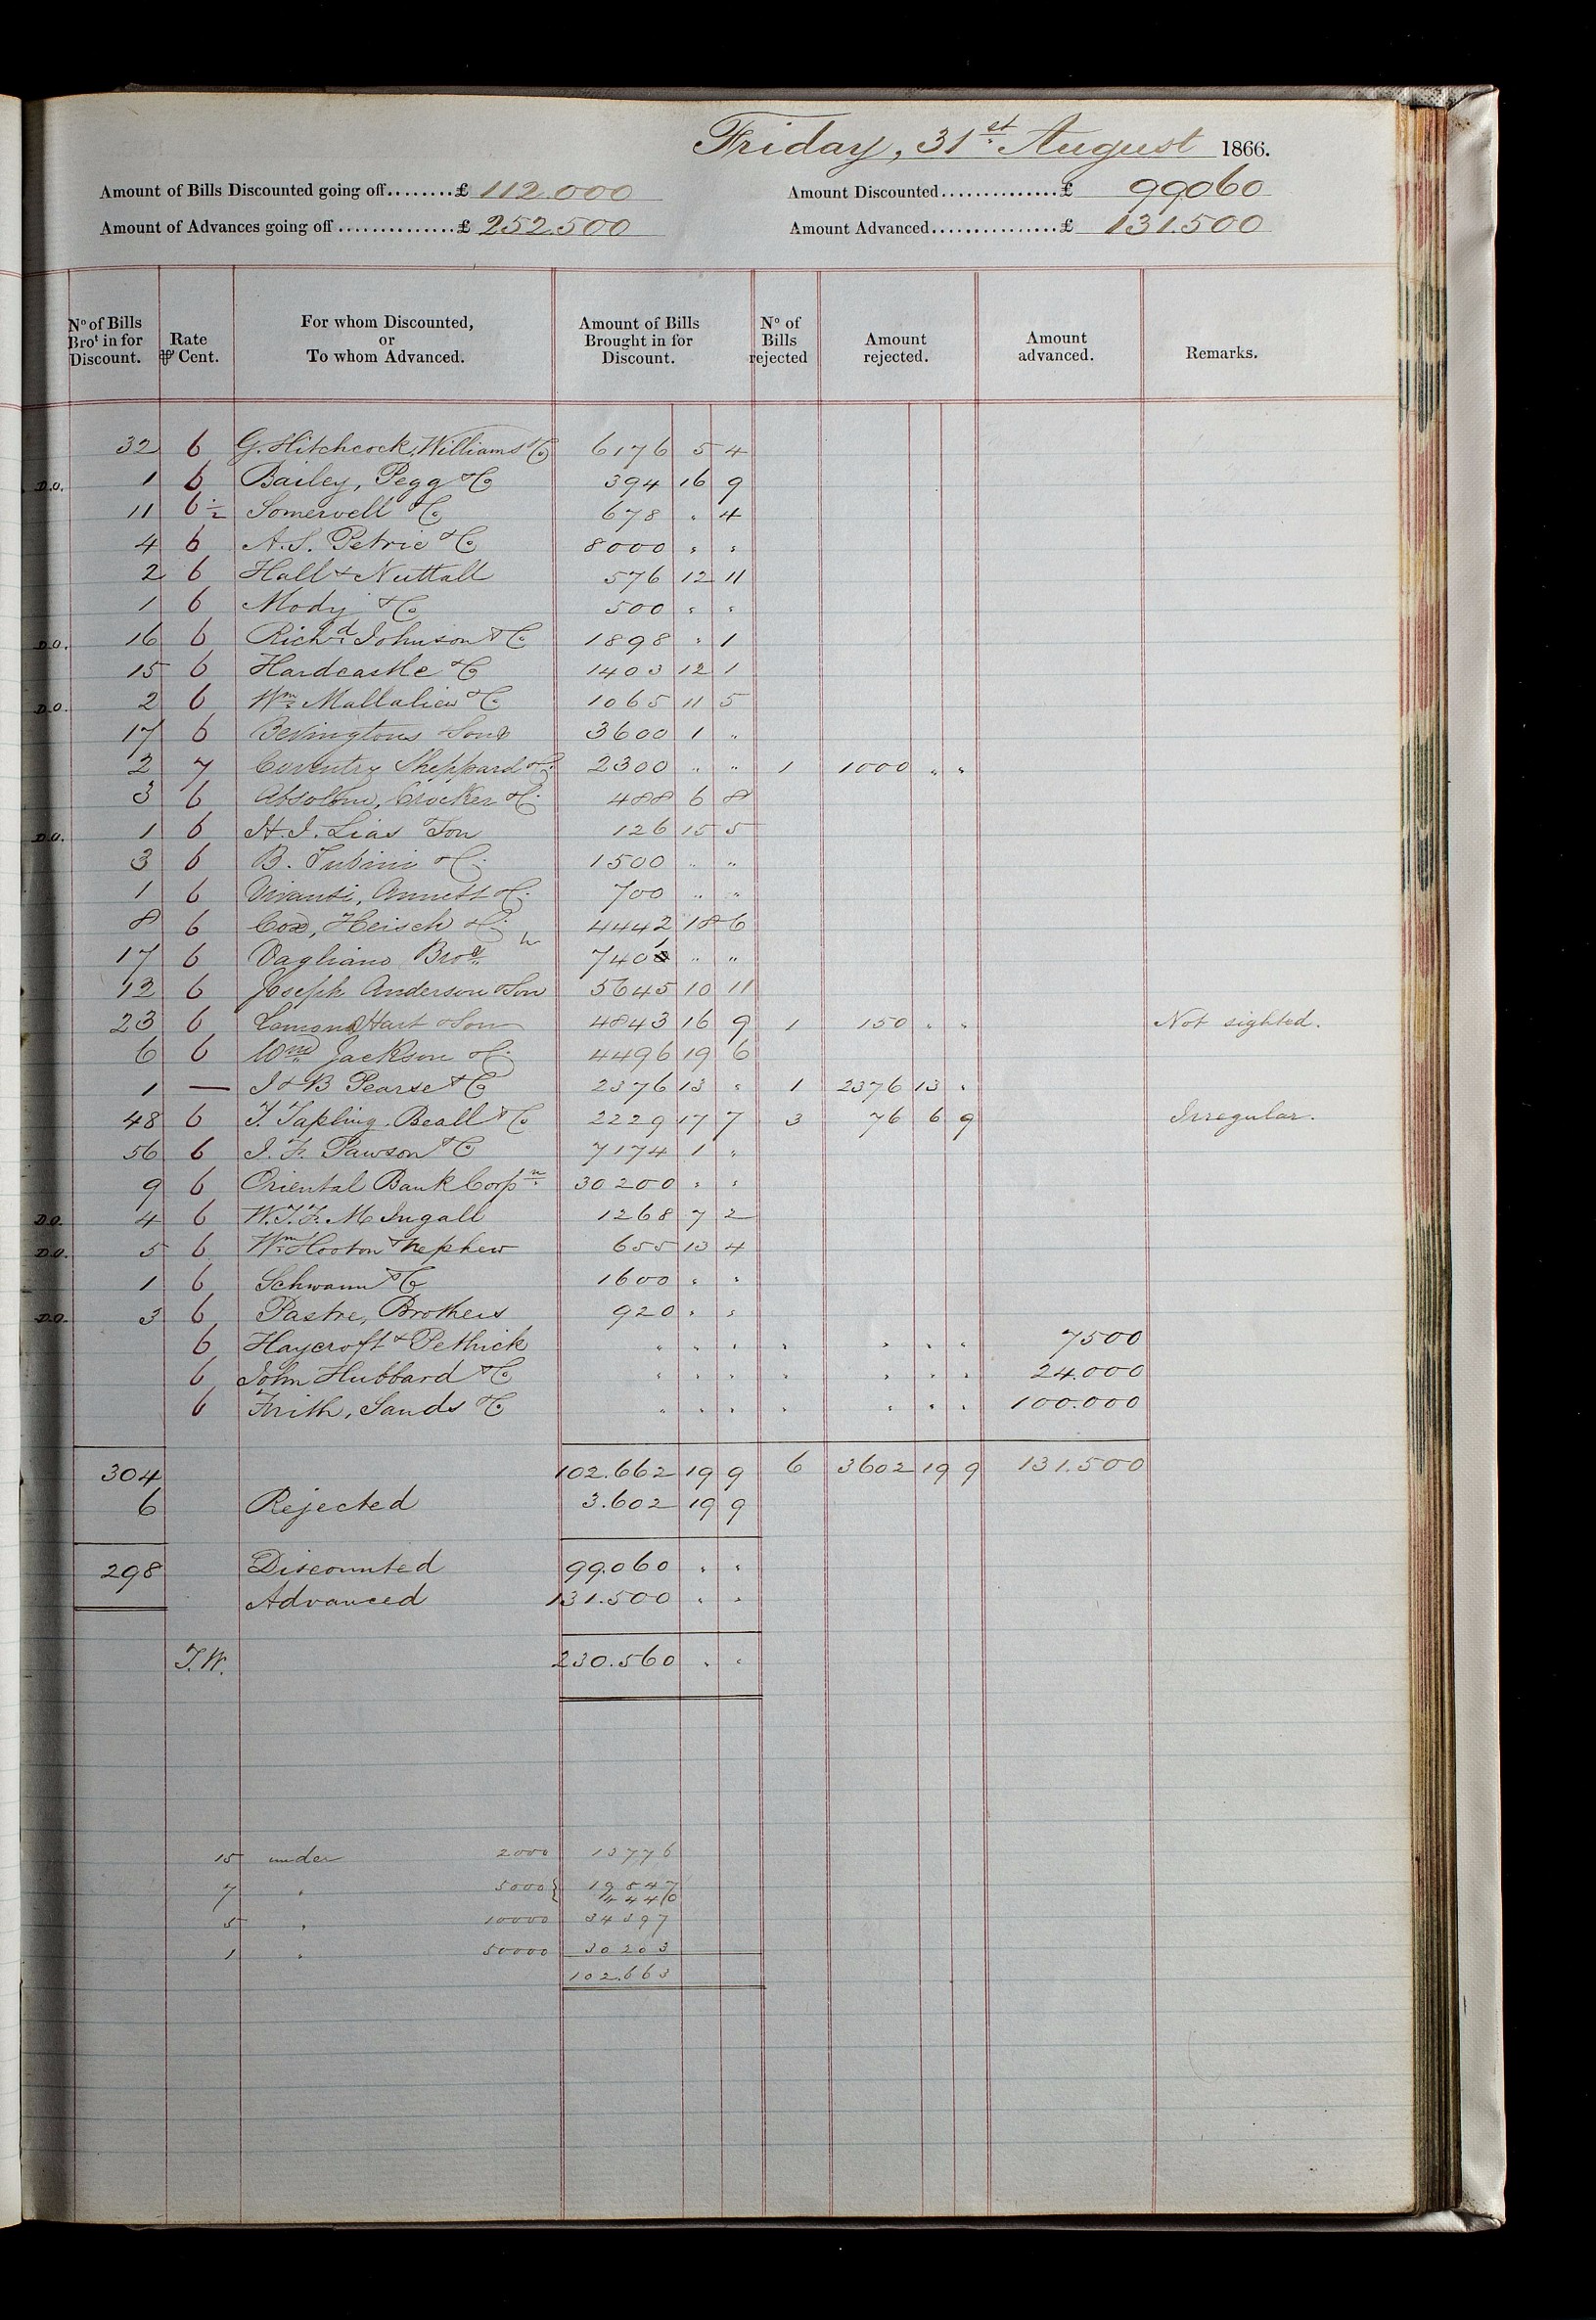 Friday, 31st August 1866.
Amount of Bills Discounted going off........£ 112.000 Amount Discounted..............£ 99060
Amount of Advances going off ..............£ 252.500 Amount Advanced...............£ 131.500
No of Bills Brot in for Discount. Rate ⅌ Cent. For whom Discounted, or To whom Advanced. Amount of Bills Brought in for Discount. No of Bills rejected Amount rejected. Amount advanced. Remarks.
32 6 G. Hitchcock, Williams & Co 6176 5 4
D.O. 1 6 Bailey, Pegg & Co 394 16 9
11 6½ Somervell & Co 678 " 4
4 6 A.S. Petrie & Co 8000 " "
2 6 Hall & Nuttall 576 12 11
1 6 Mody & Co 500 " "
D.O. 16 6 Richd Johnson & Co 1898 " 1
15 6 Hardcastle & Co 1403 12 1
D.O. 2 6 Wm Mallalieu & Co 1065 11 5
17 6 Bevingtons & Sons 3600 1 "
2 7 Coventry Sheppard & Co 2300 " " 1 1000 " "
3 6 Absolom, Crocker & Co 488 6 8
D.O. 1 6 H. I. Lias & Son 126 15 5
3 6 B. Tubini & Co 1500 " "
1 6 Vivanti, Annett & Co 700 " "
8 6 Cox, Heisch & Co 4442 18 6
17 6 Vagliano Bros 7401 " "
12 6 Joseph Anderson & Son 5645 10 11
23 6 Lemon Hart & Son 4843 16 9 1 150 " " Not sighted.
6 6 Wm Jackson & Co 4496 19 6
1 — J & B Pearse & Co 2376 13 " 1 2376 13 "
48 6 T. Tapling, Beall & Co 2229 17 7 3 76 6 9 Irregular.
56 6 J. F. Pawson & Co 7174 1 "
9 6 Oriental Bank Corpn 30200 " "
D.O. 4 6 W.T.F.M Ingall 1268 7 2
D.O. 5 6 Wm Hooton & Nephew 655 13 4
1 6 Schwann & Co 1600 " "
D.O. 3 6 Pastre, Brothers 920 " "
6 Haycroft & Pethick " " " " " " " 7500
6 John Hubbard & Co " " " " " " " 24.000
6 Frith, Sands & Co " " " " " " " 100.000
304 102.662 19 9 6 3602 19 9 131.500
6 Rejected 3.602 19 9
298 Discounted 99.060 " "
Advanced 131.500 " "
T.W. 230.560 " "
15 under 2000 13776
7 " 5000 { 19847
4440
5 " 10000 34397
1 " 50000 30203
102.663